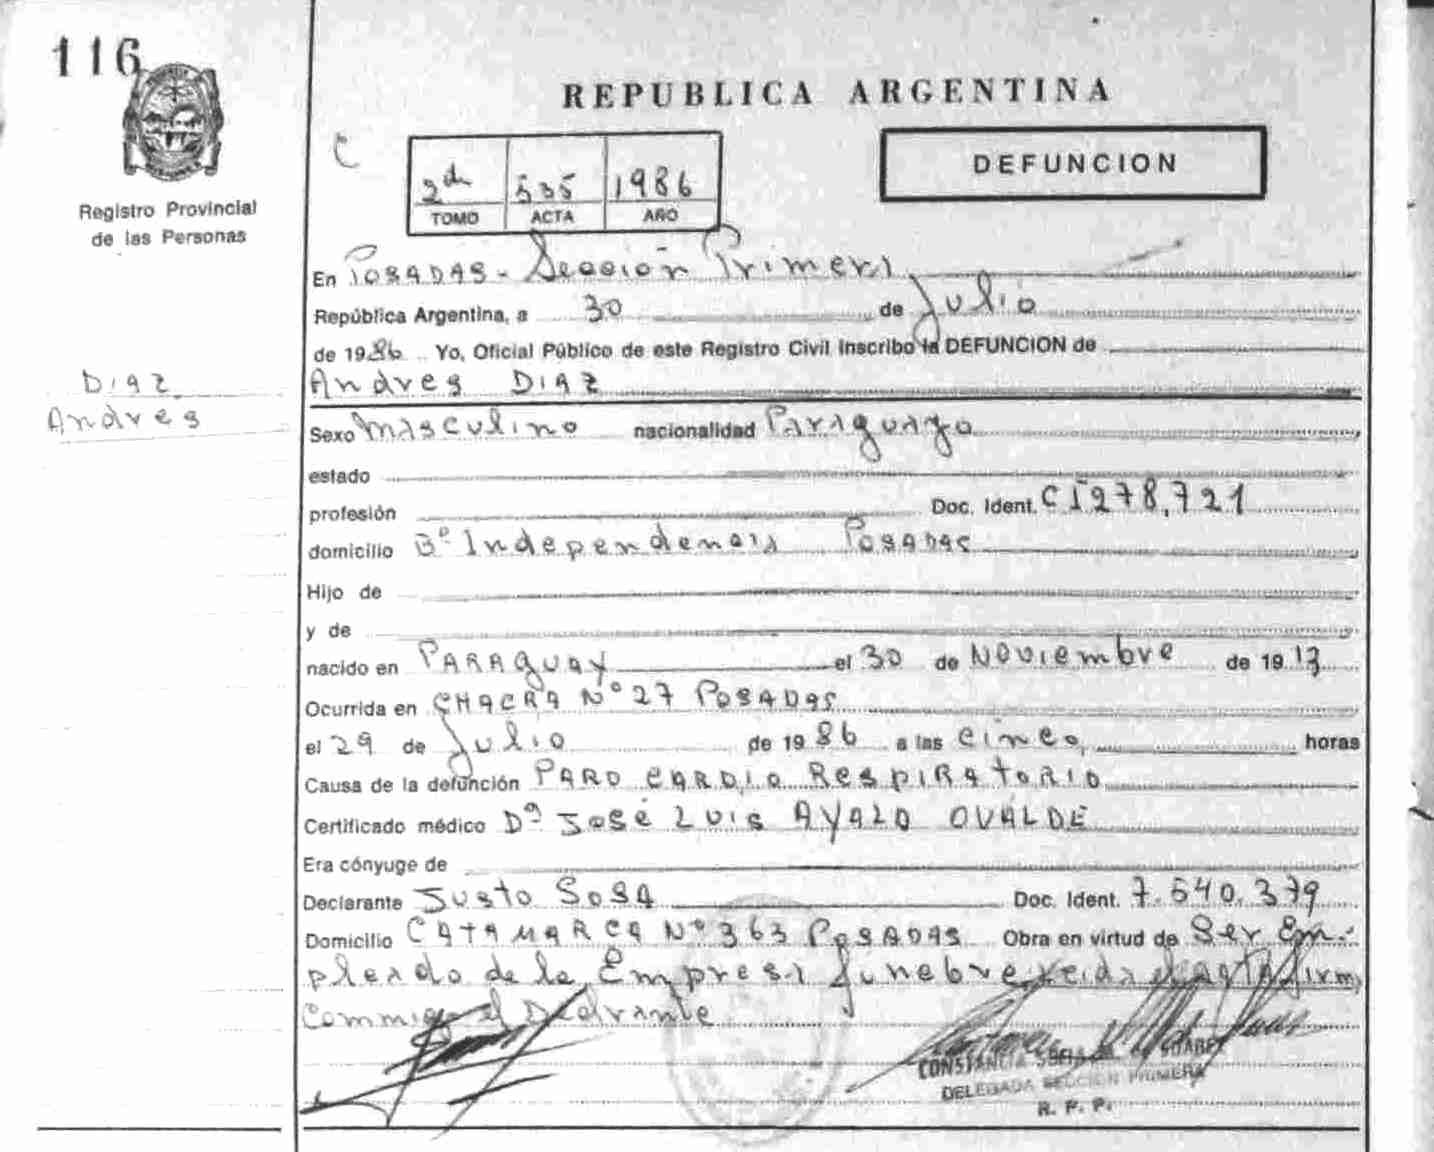 116
REPUBLICA ARGENTINA
DEFUNCION
2do 535 1986
TOMO ACTA AÑO
Registro Provincial
de las Personas
En POSADAS - Sección Primera
República Argentina, a 30 de Julio
de 1986 Yo, Oficial Público de este Registro Civil Inscribo la DEFUNCION de
Andres DIAZ
DIAZ
Andres
Sexo Masculino nacionalidad Paraguayo
estado
profesión Doc. Ident. CI 278,721
domicilio Bº Independencia Posadas
Hijo de
y de
nacido en PARAguAY el 30 de Noviembre de 1913
Ocurrida en CHACRA Nº 27 POSADAS
el 29 de Julio de 1986 a las cinco, horas
Causa de la defunción PARO CARDIO RESPIRATORIO
Certificado médico Dº José Luis AYALA OVALDE
Era cónyuge de
Declarante Justo SOSA Doc. Ident. 7.540.379
Domicilio CATAMARCA Nº 363 POSADAS Obra en virtud de Ser Em-
pleado de la Empresa funebre Leida el acta firma
Commigo el
CONSTANCIA DE SUAREZ
DELEGADA SECCION PRIMERA
R. P. P.